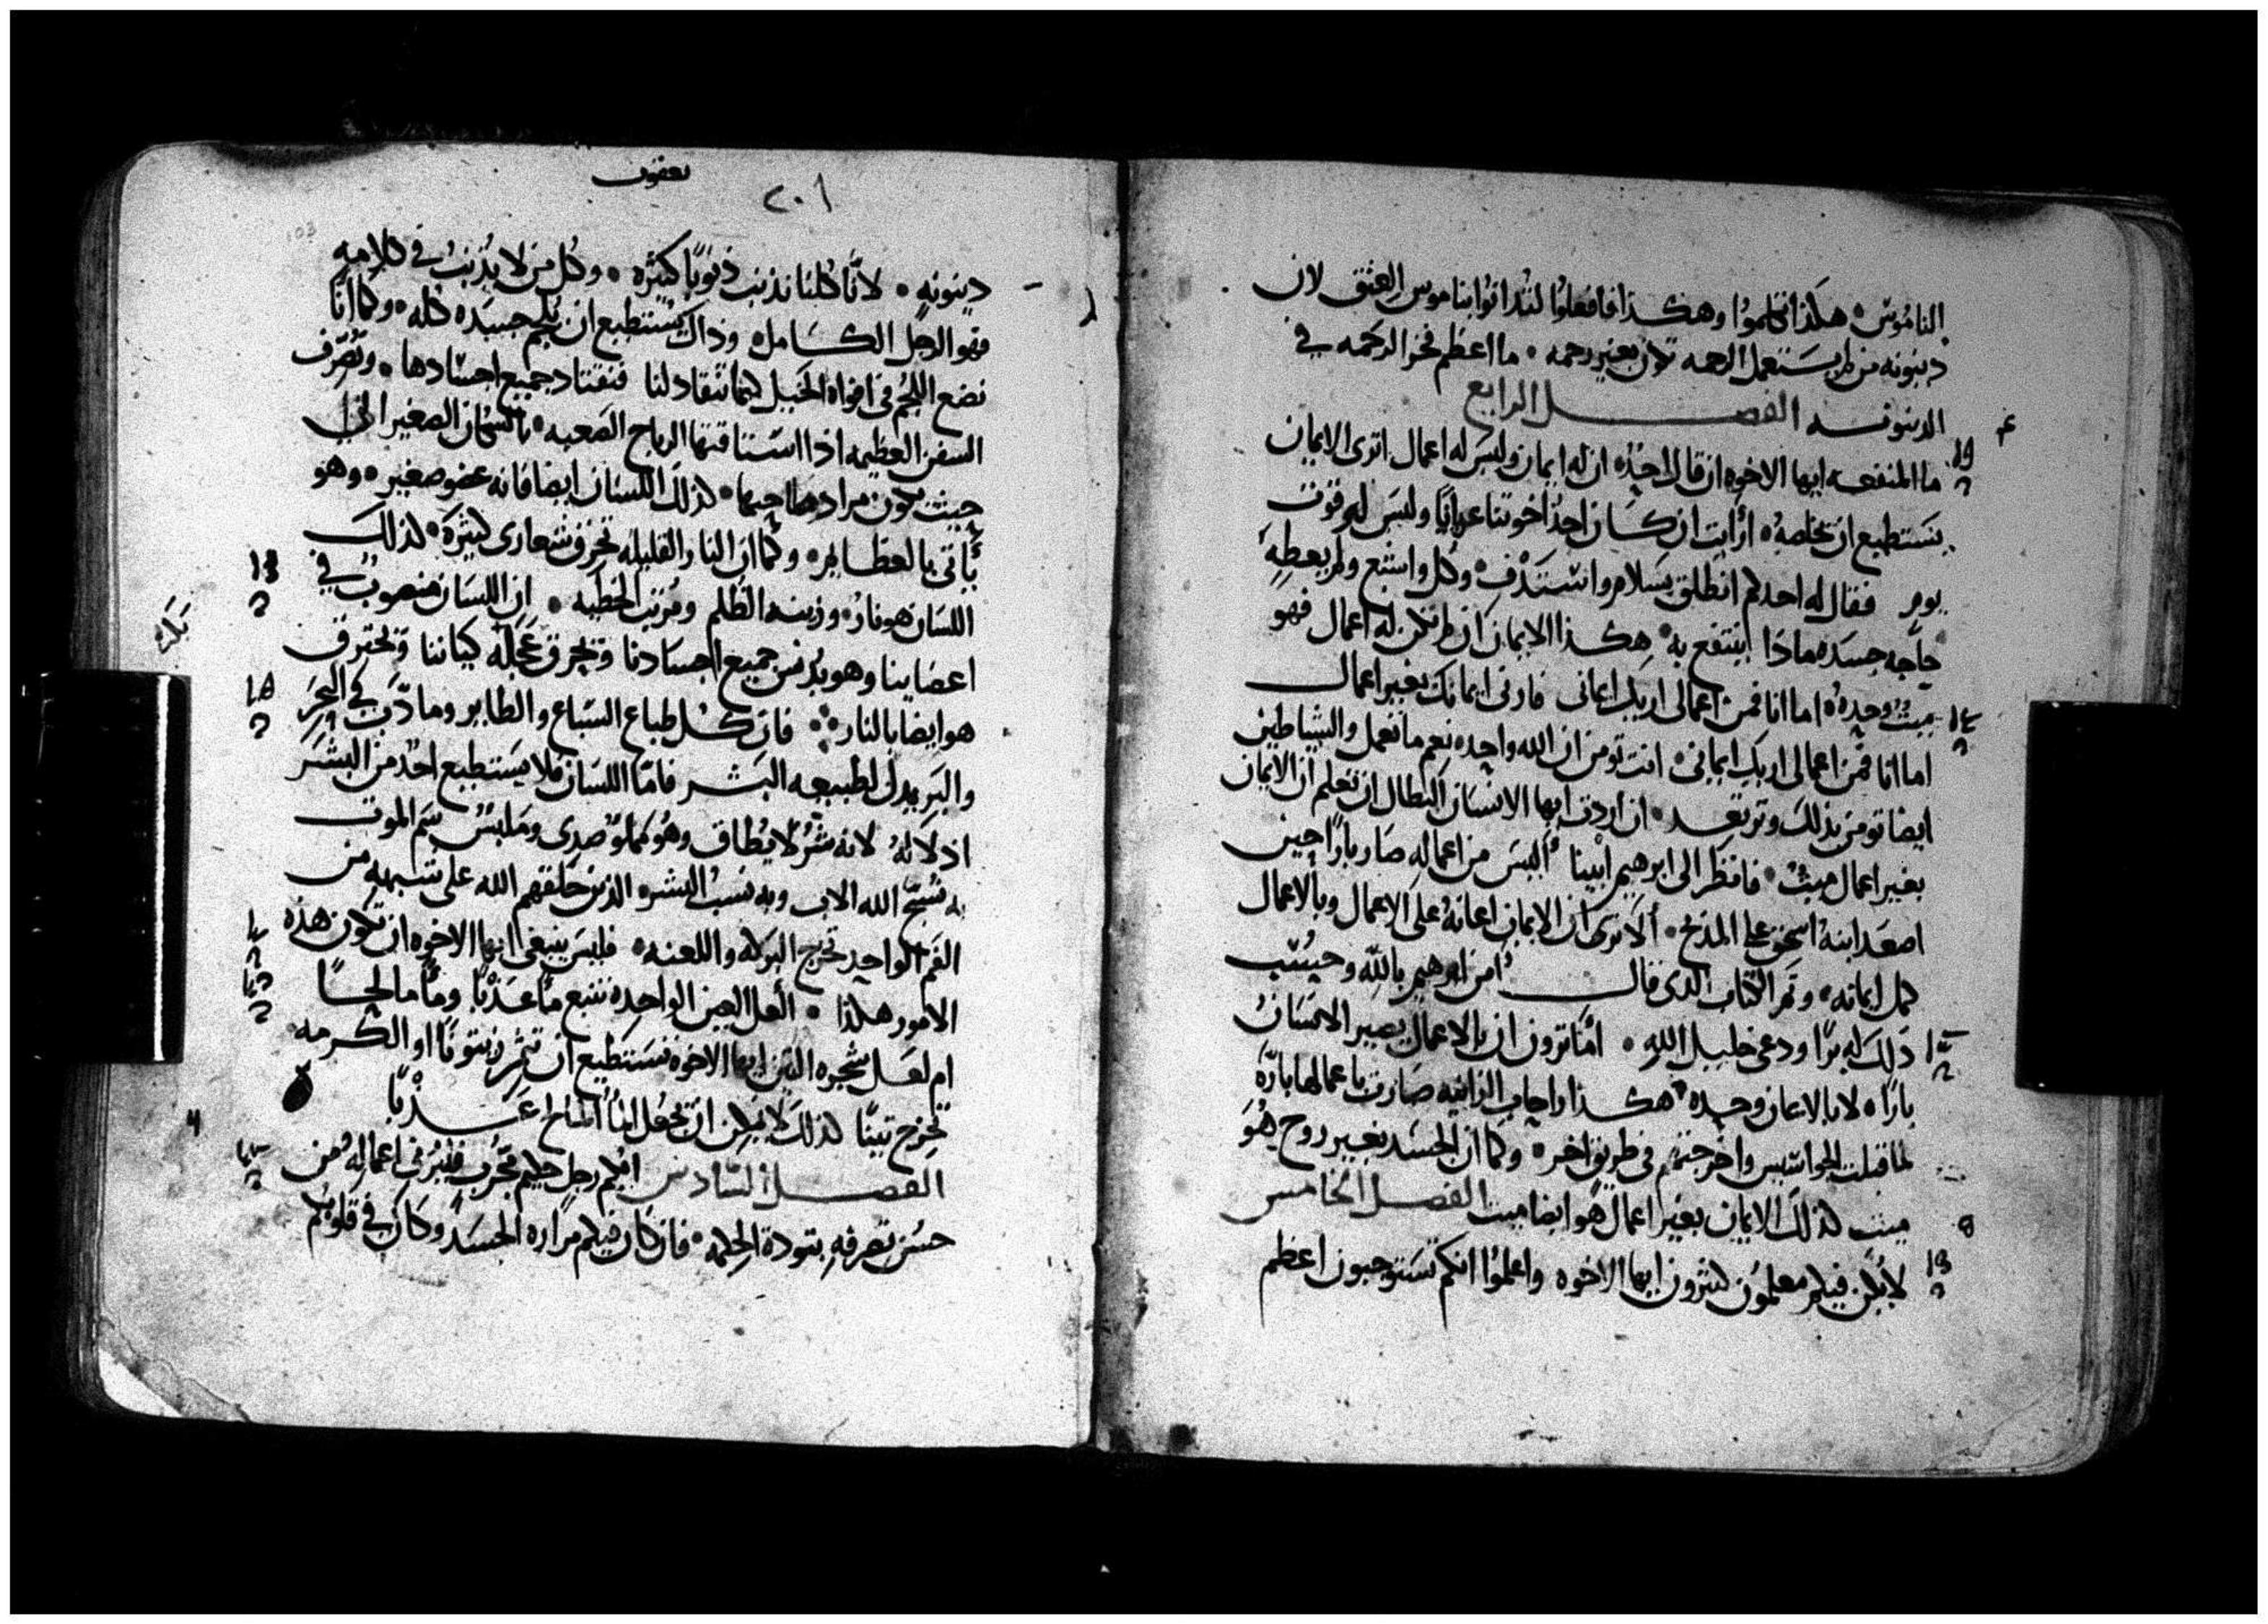 الناموس هكذا تكلموا وهكذا فافعلوا لتدانوا بناموس العتق لان
دينونه من لم يستعمل الرحمه تكون بغير رحمه ما اعظم فخر الرحمه في
الدينونه الفصل الرابع
ما المنفعه ايها الاخوه ان قال احد ان له ايمان وليس له اعمال اترى الايمان
يستطيع ان يخلصه ارايت ان كان احد اخوتنا عريانا وليس له قوت
يوم فقال له احدكم انطلق بسلام واستدف وكل واشبع ولم يعطه
حاجه جسده ماذا ينتفع به هكذا الايمان ان لم تكن له اعمال فهو
ميت وحده اما انا فمن اعمالي اريك ايماني فارني ايمانك بغير اعمال
اما انا فمن اعمالي اريك ايماني انت تومن ان الله واحد نعم ما تعمل والشياطين
ايضا تومن بذلك وترتعد ان اردت ايها الانسان البطال ان تعلم ان الايمان
بغير اعمال ميت فانظر الى ابرهيم ابينا اليس من اعماله صار بارا حين
اصعد ابنه اسحق على المذبح الا ترى ان الايمان اعانه على الاعمال وبالاعمال
كمل ايمانه وتم الكتاب الذى قال امن ابرهيم بالله وحسب
ذلك له برا ودعي خليل الله اما ترون ان بالاعمال يصير الانسان
بارا لا بالايمان وحده هكذا راحاب الزانيه صارت باعمالها باره
لما قبلت الجواسيس واخرجتهم في طريق اخر وكما ان الجسد بغير روح هو
ميت كذلك الايمان بغير اعمال هو ايضا ميت الفصل الخامس
لا يكن فيكم معلمون كثيرون ايها الاخوه واعلموا انكم تستوجبون اعظم
يعقوب
٢٠١
دينونه لانا كلنا نذنب ذنوبا كثيره وكل من لا يذنب في كلامه
فهو الرجل الكامل وذاك يستطيع ان يلجم جسده كله وكما انا
نضع اللجم في افواه الخيل كيما تنقاد لنا فنقتاد جميع اجسادها وتصرف
السفن العظيمه اذا استاقتها الرياح الصعبه بالسكان الصغير الى
حيث يكون مراد صاحبها كذلك اللسان ايضا فانه عضو صغير وهو
ياتى بالعظايم وكما ان النار القليله تحرق شعارى كثيره كذلك
اللسان هو نار وزينه الظلم ومرتب الخطيه ان اللسان منصوب في
اعضاينا وهو يدنس جميع اجسادنا وتحرق عجله كياننا وتحترق
هو ايضا بالنار فان كل طباع السباع والطاير وما دب في البحر
والبر يدل لطبيعه البشر فاما اللسان فلا يستطيع احد من البشر
اذلاله لانه شر لا يطاق وهو مملو صدى وملبس سم الموت
به نسبح الله الاب وبه نسب البشر الذين خلقهم الله على شبهه من
الفم الواحد تخرج البركه واللعنه فليس ينبغى ايها الاخوه ان تكون هذه
الامور هكذا العل العين الواحده تنبع ما عذبا وما مالحا
ام لعل شجره التين ايها الاخوه تستطيع ان تثمر زيتونا او الكرمه
تخرج تينا كذلك لا يمكن ان يجعل الما المالح عذبا
الفصل السادس ايكم رجل حكيم مجرب فلير في اعماله من
حسن تصرفه بتودة الحكمه فان كان فيكم مراره الحسد وكان في قلوبكم